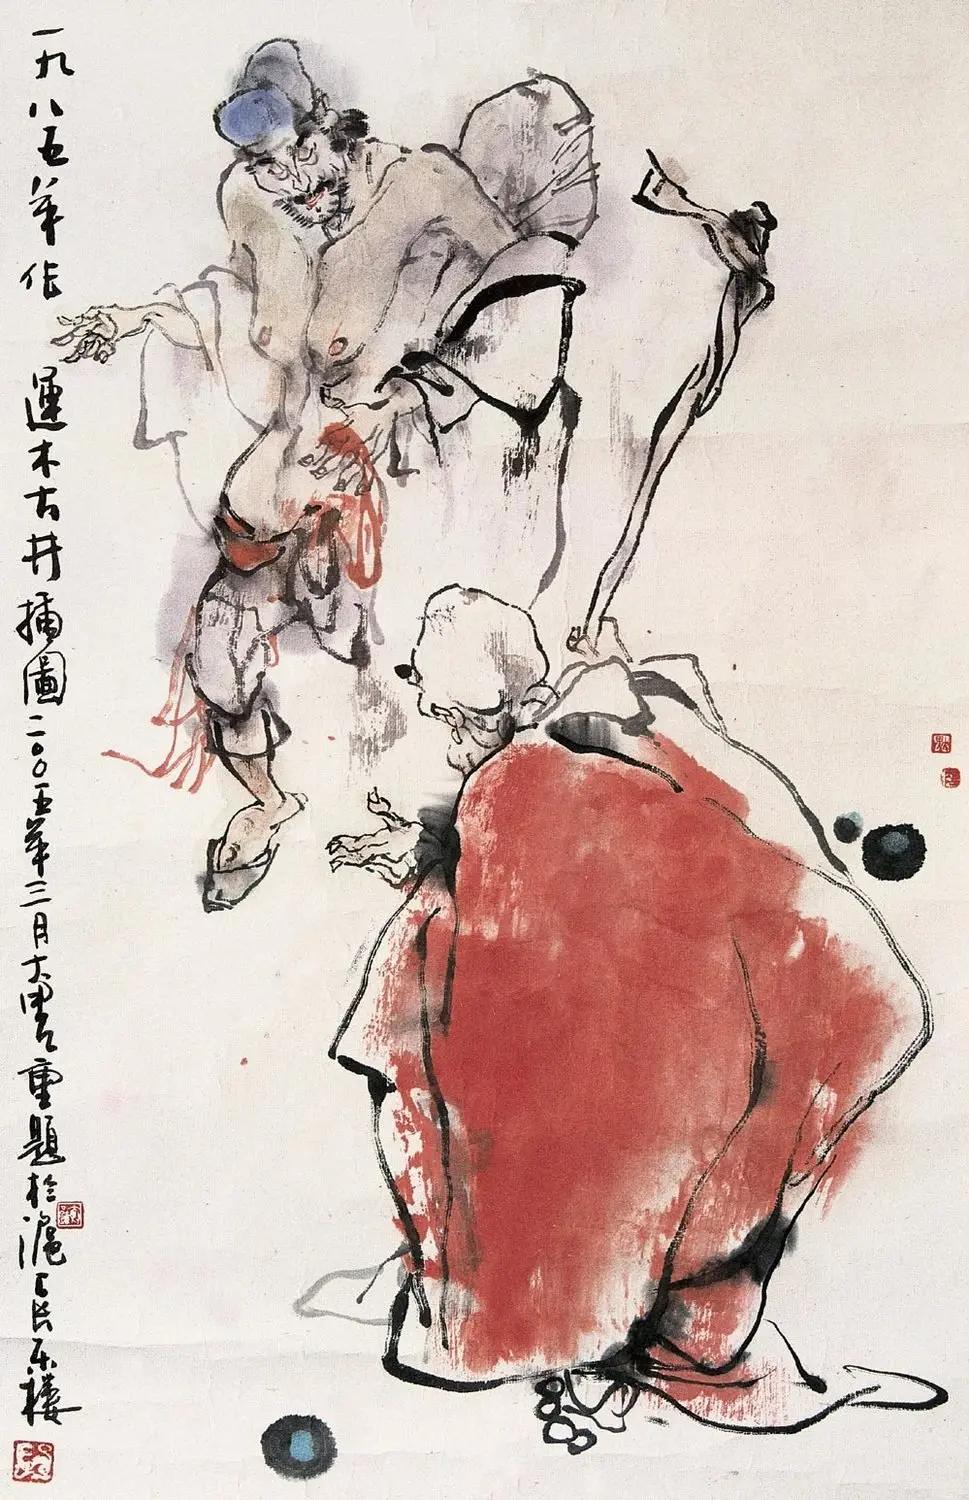 一九八五年作 運木古井插圖 二〇〇五年三月大畏重題於滬長乐楼